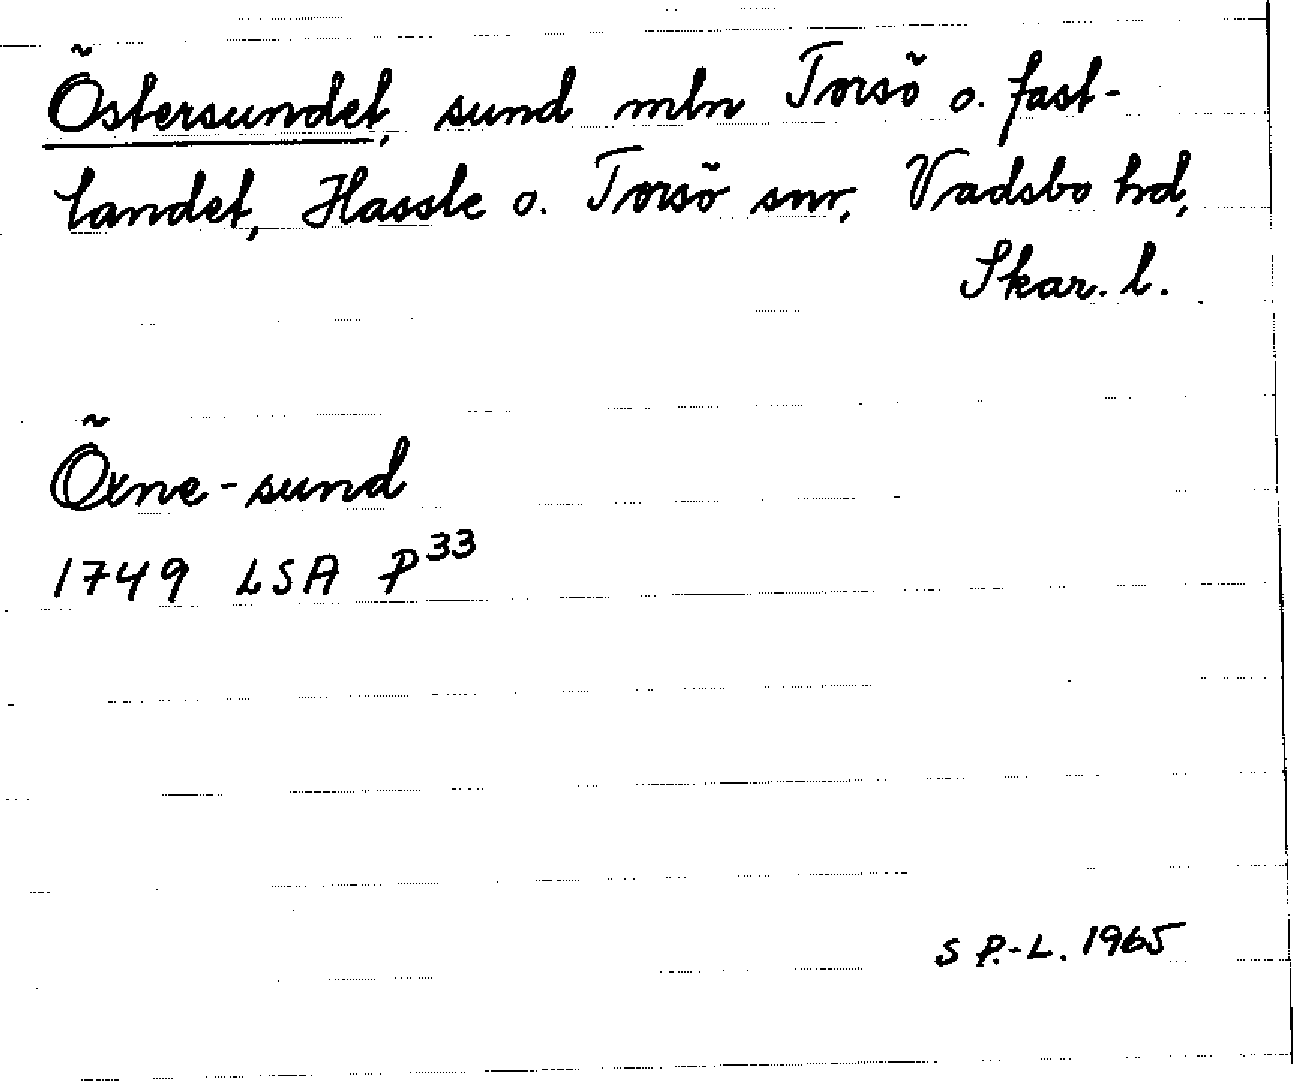 Östersundet, sund mln Torsö o. fast-
landet, Hassle o. Torsö snr, Vadsbo hd,
Skar. l.
Öxne-sund
1749 LSA P³³
S P.-L. 1965